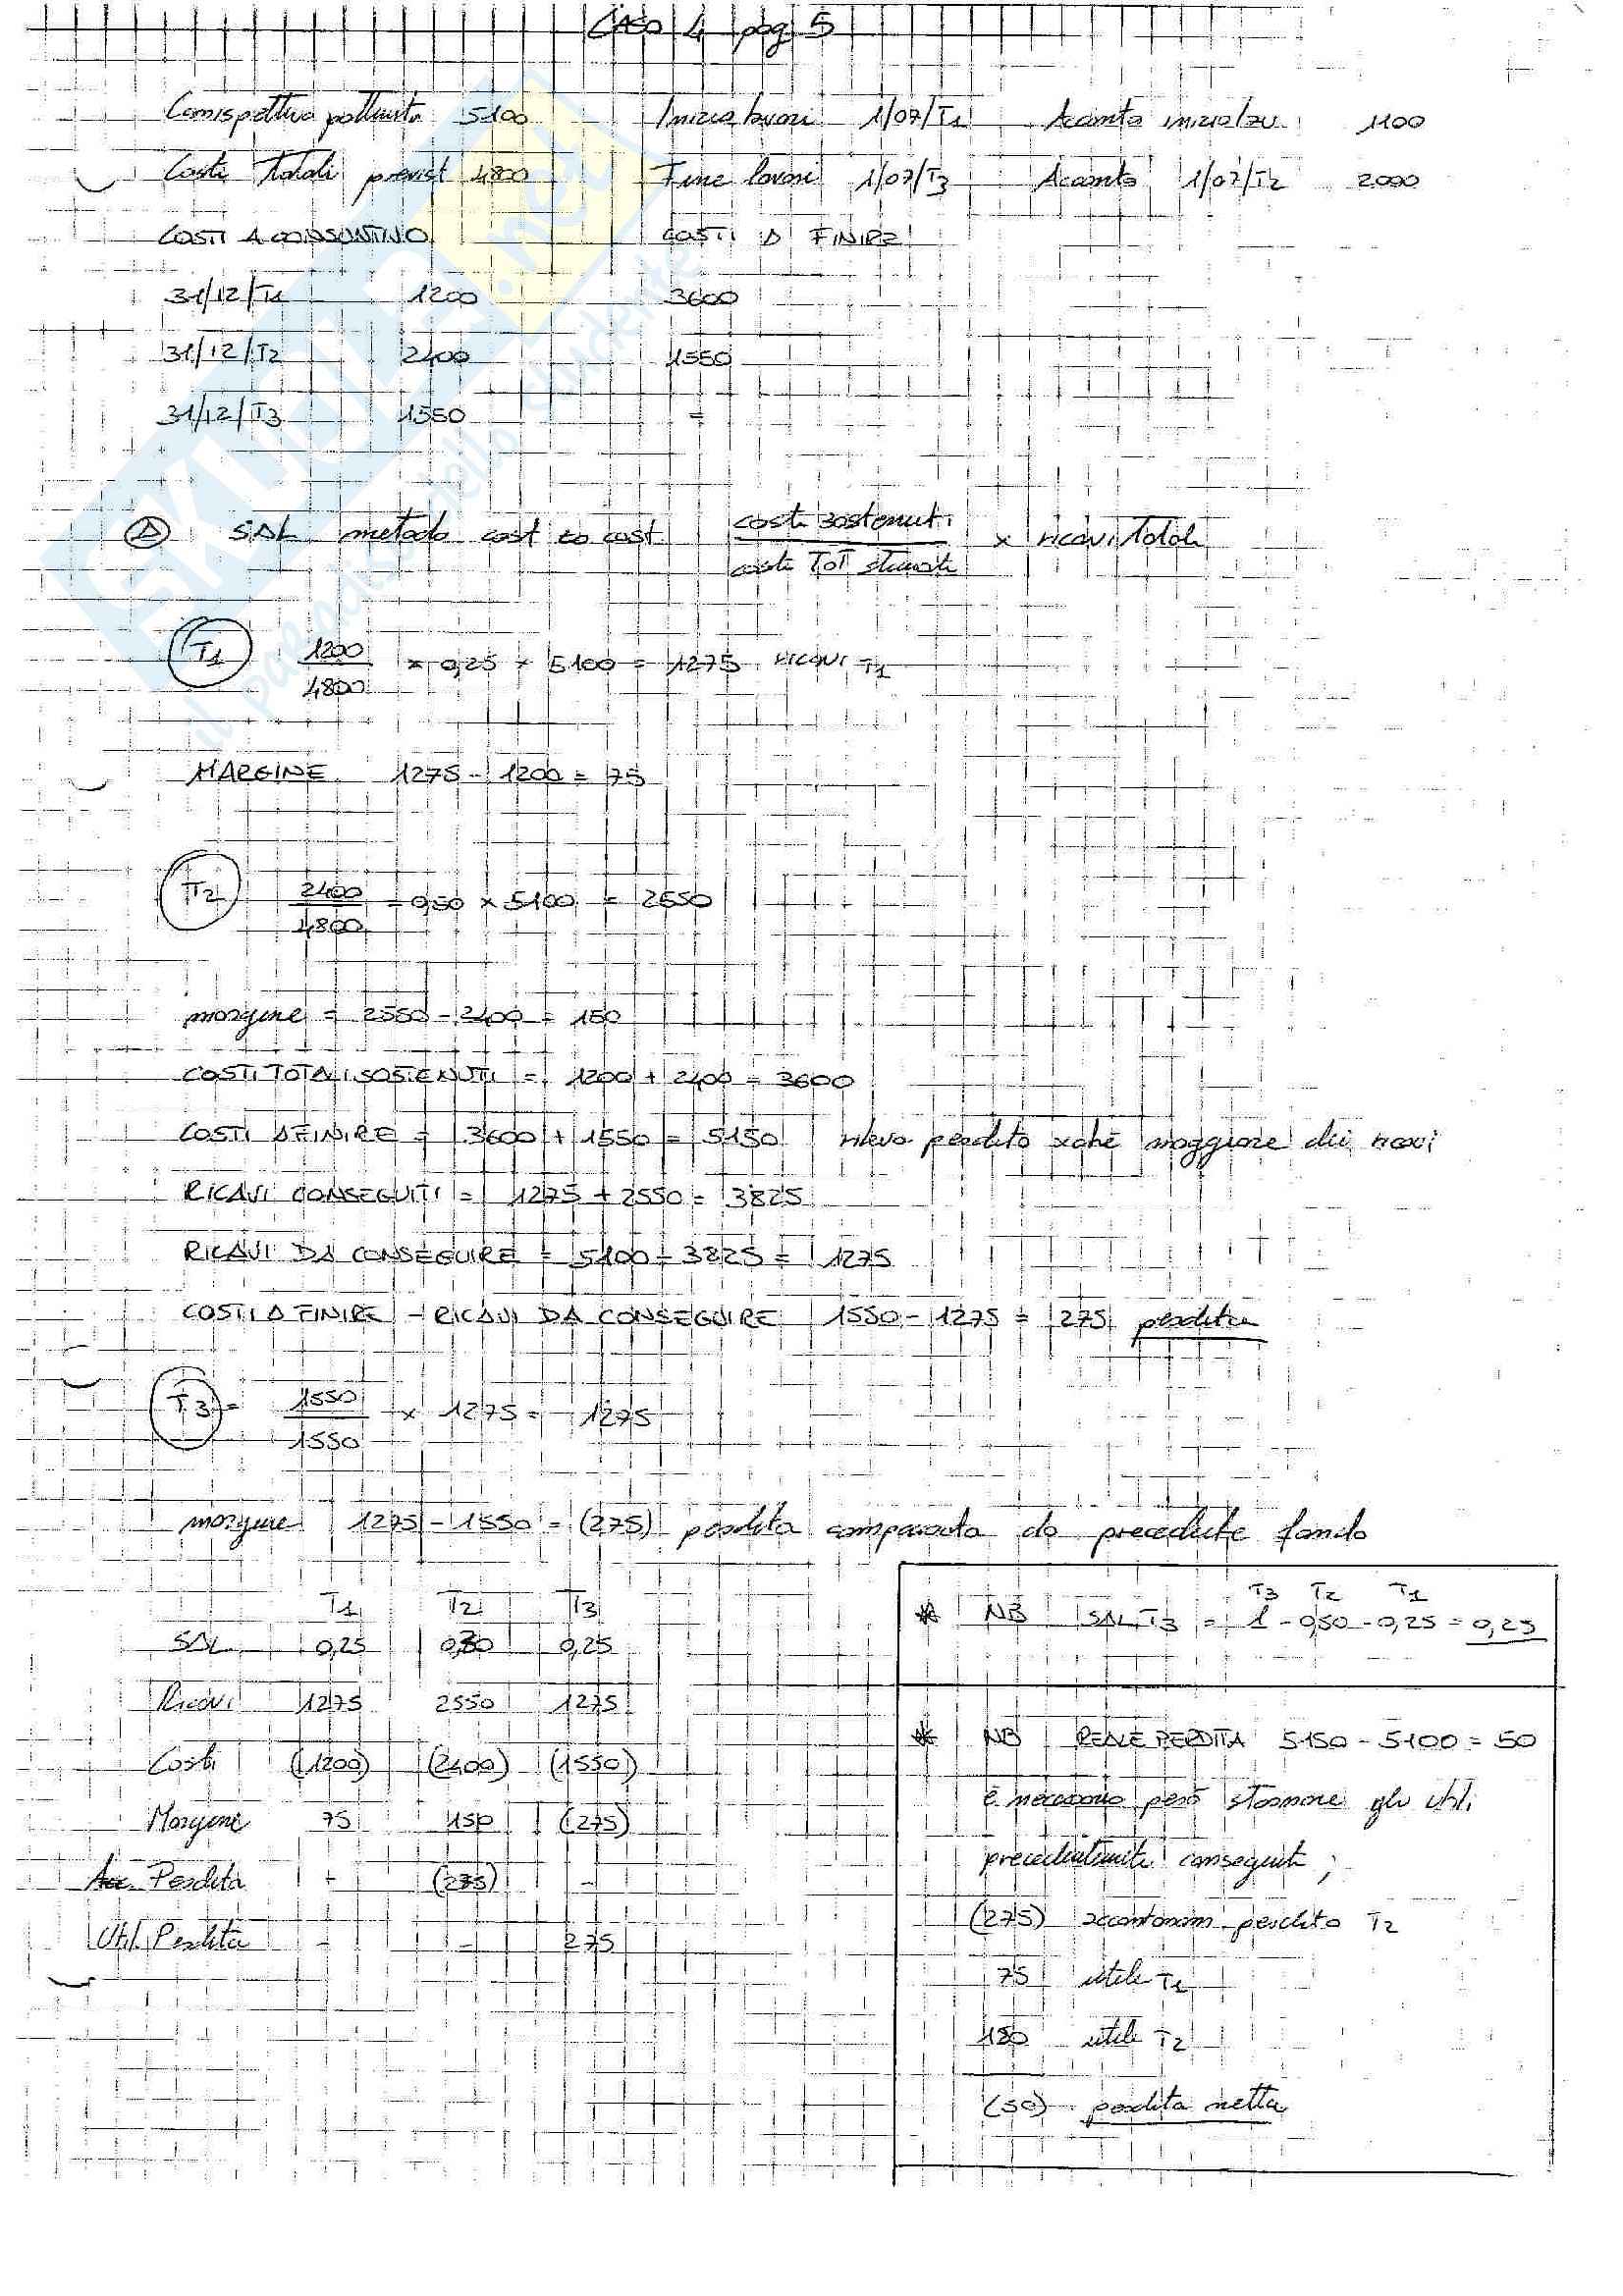 CASO 4 pag 5
Corrispettivo pattuito 5100 Inizio lavori 1/07/T1 Acconto inizio lav. 1100
Costi Totali previsti 4800 Fine lavori 1/07/T3 Acconto 1/07/T2 2000
COSTI A CONSUNTIVO COSTI A FINIRE
31/12/T1 1200 3600
31/12/T2 2400 1550
31/12/T3 1550 =
A SAL metodo cost to cost costi sostenuti / costi TOT stimati x ricavi Totali
T1 1200/4800 = 0,25 x 5100 = 1275 ricavi T1
MARGINE 1275 - 1200 = 75
T2 2400/4800 = 0,50 x 5100 = 2550
margine = 2550 - 2400 = 150
COSTI TOTALI SOSTENUTI = 1200 + 2400 = 3600
COSTI A FINIRE = 3600 + 1550 = 5150 rilevo perdita xchè maggiore dei ricavi
RICAVI CONSEGUITI = 1275 + 2550 = 3825
RICAVI DA CONSEGUIRE = 5100 - 3825 = 1275
COSTI A FINIRE - RICAVI DA CONSEGUIRE 1550 - 1275 = 275 perdita
T3 = 1550/1550 x 1275 = 1275
margine 1275 - 1550 = (275) perdita compensata da precedente fondo
T1 T2 T3
SAL 0,25 0,50 0,25
Ricavi 1275 2550 1275
Costi (1200) (2400) (1550)
Margine 75 150 (275)
Acc. Perdita - (275) -
Util. Perdita - - 275
T3 T2 T1
* NB SAL T3 = 1 - 0,50 - 0,25 = 0,25
* NB REALE PERDITA 5150 - 5100 = 50
è necessario però stornare gli utili
precedentemente conseguiti;
(275) accantonam perdita T2
75 utile T1
150 utile T2
(50) perdita netta